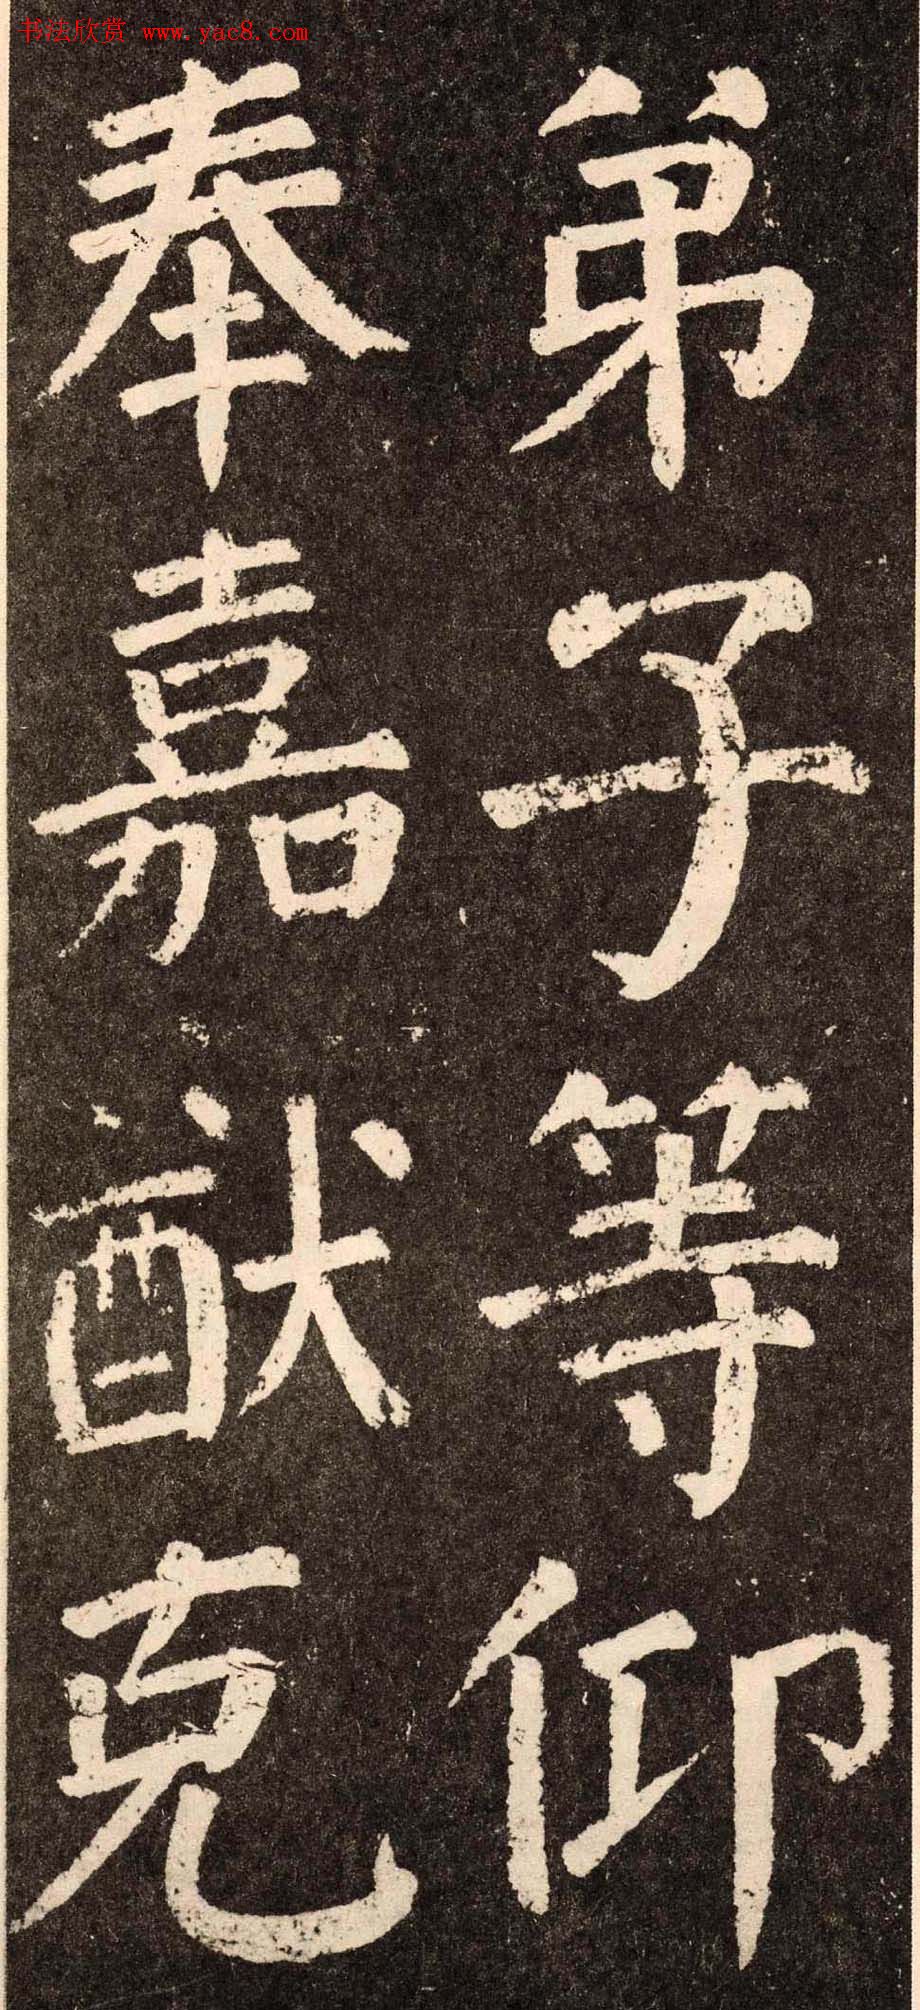 书法欣赏 www.yac8.com
弟子等仰
奉嘉猷克